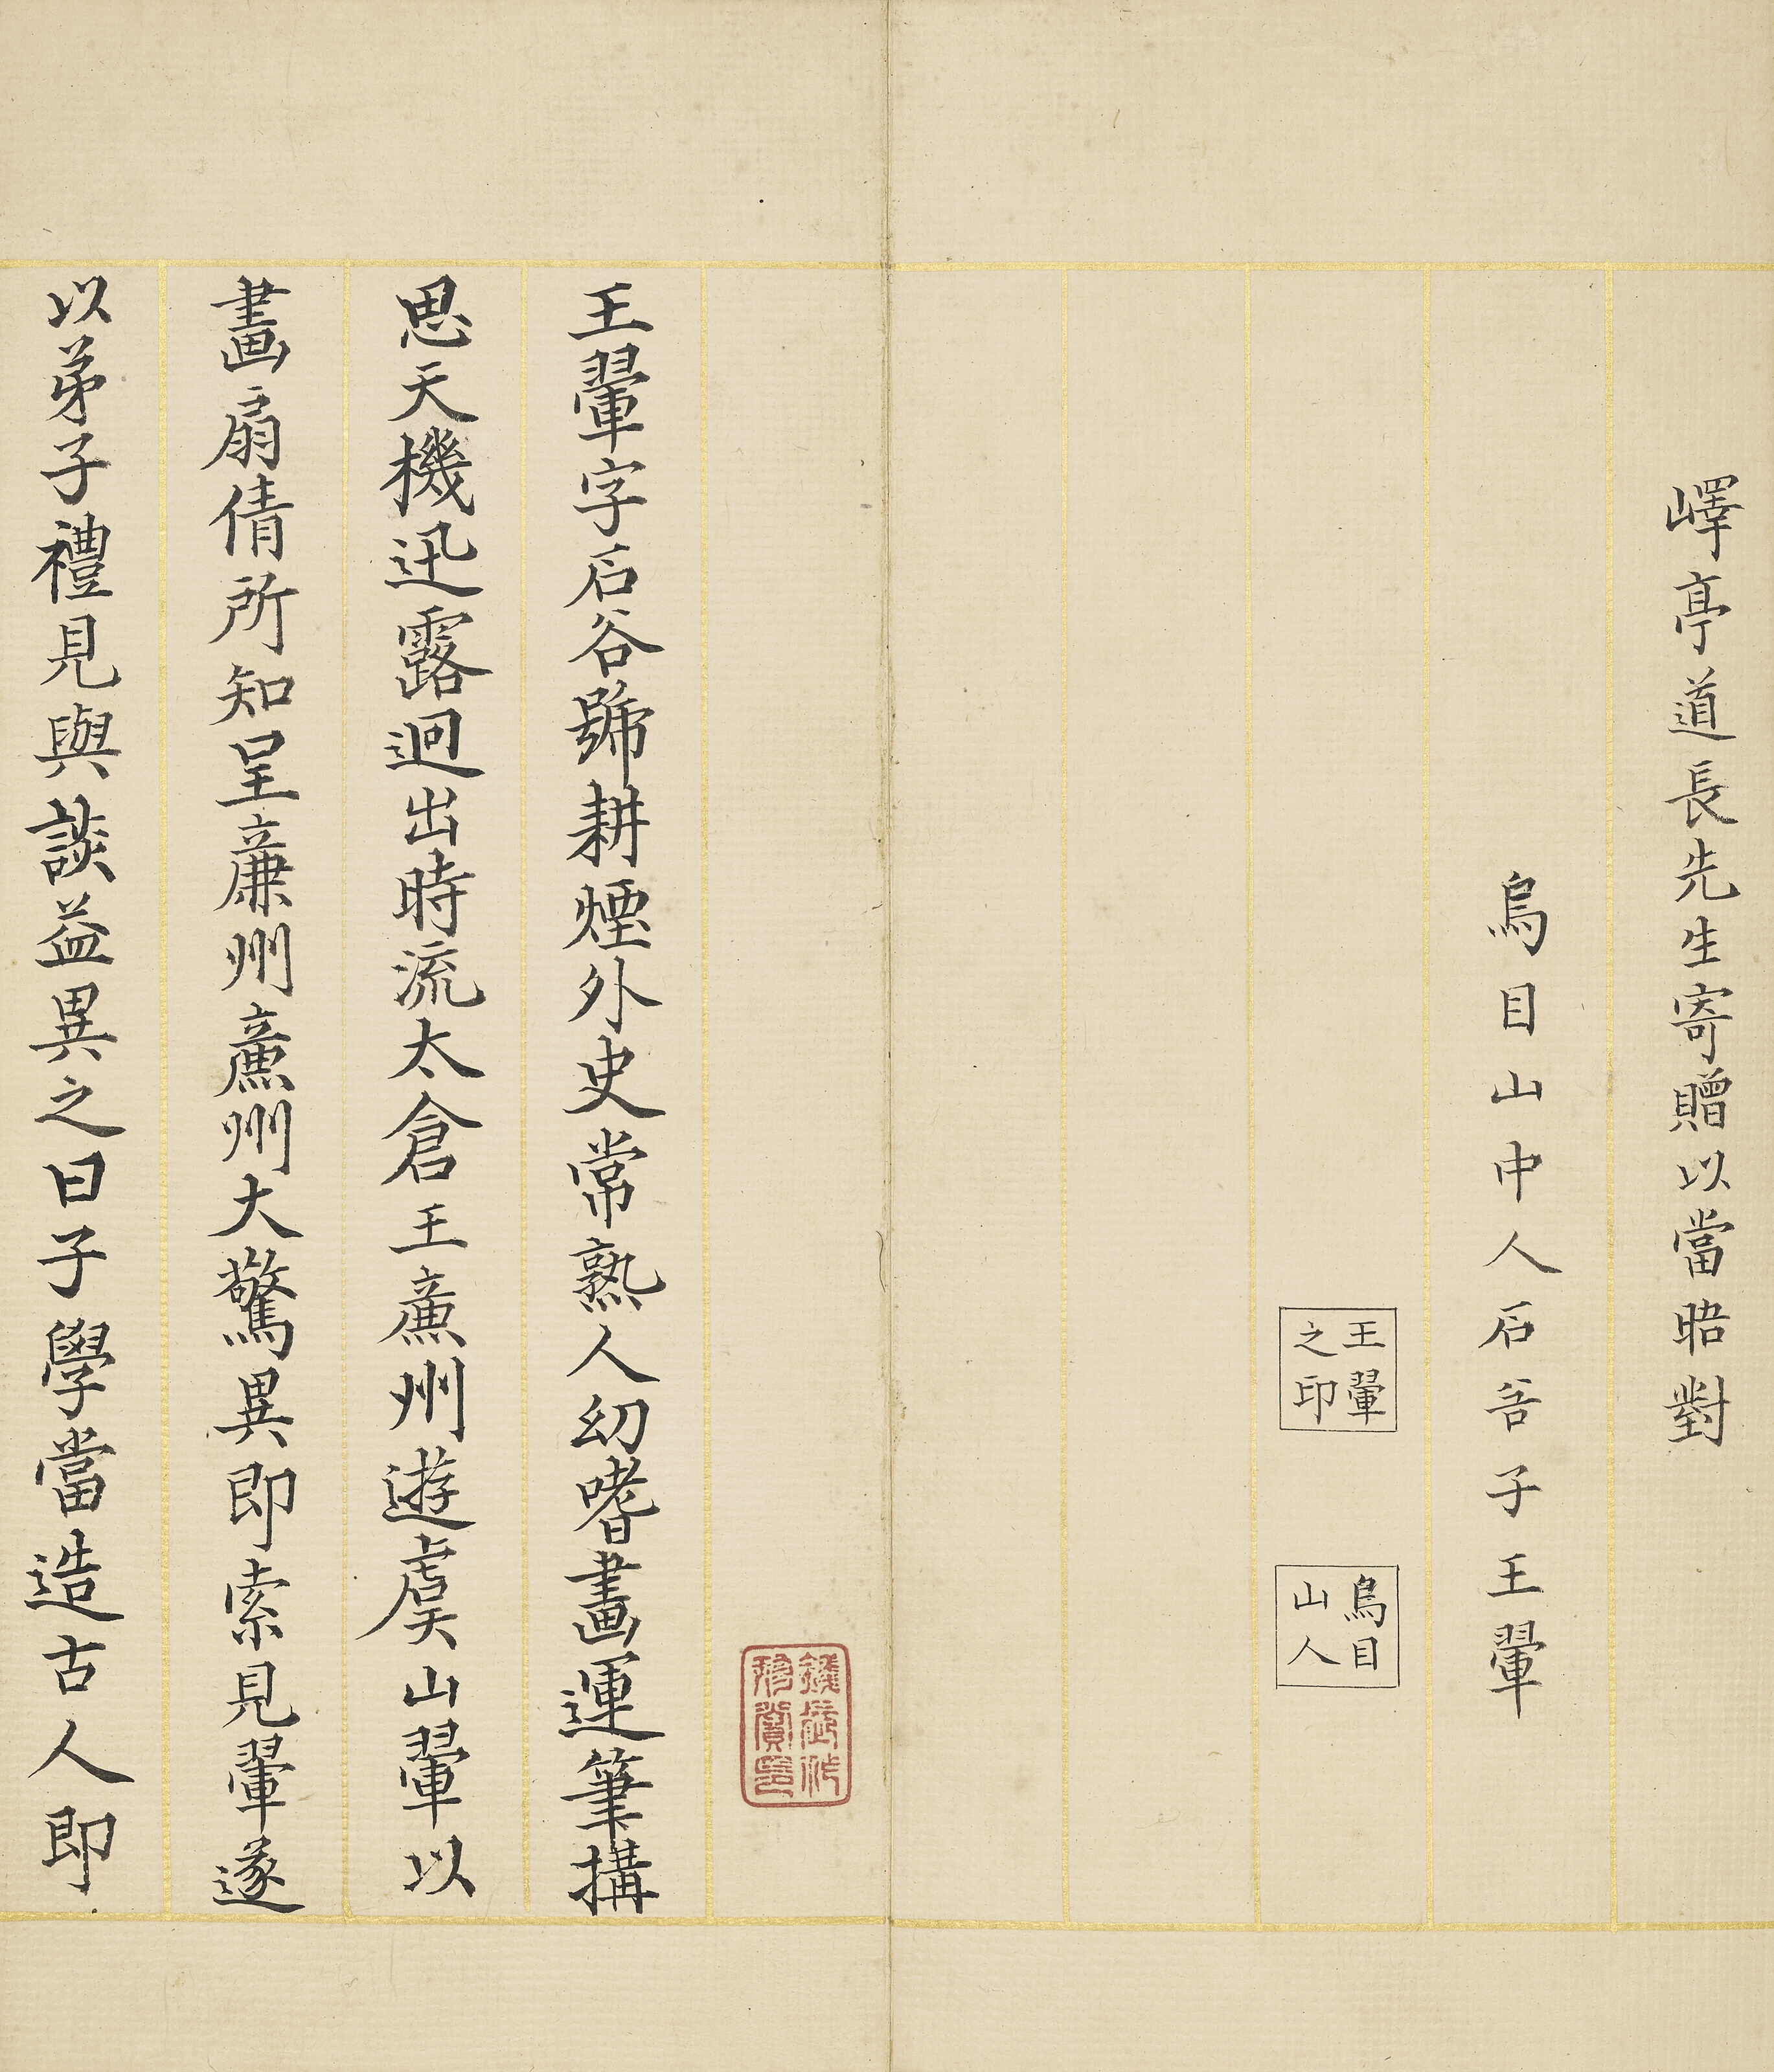 嶧亭道長先生寄贈以當晤對
烏目山中人石谷子王翬
王翬之印
烏目山人
王翬字石谷號耕煙外史常熟人幼嗜畫運筆搆
思天機迅露迥出時流太倉王廉州遊虞山翬以
畫扇倩所知呈廉州廉州大驚異即索見翬遂
以弟子禮見與談益異之曰子學當造古人即